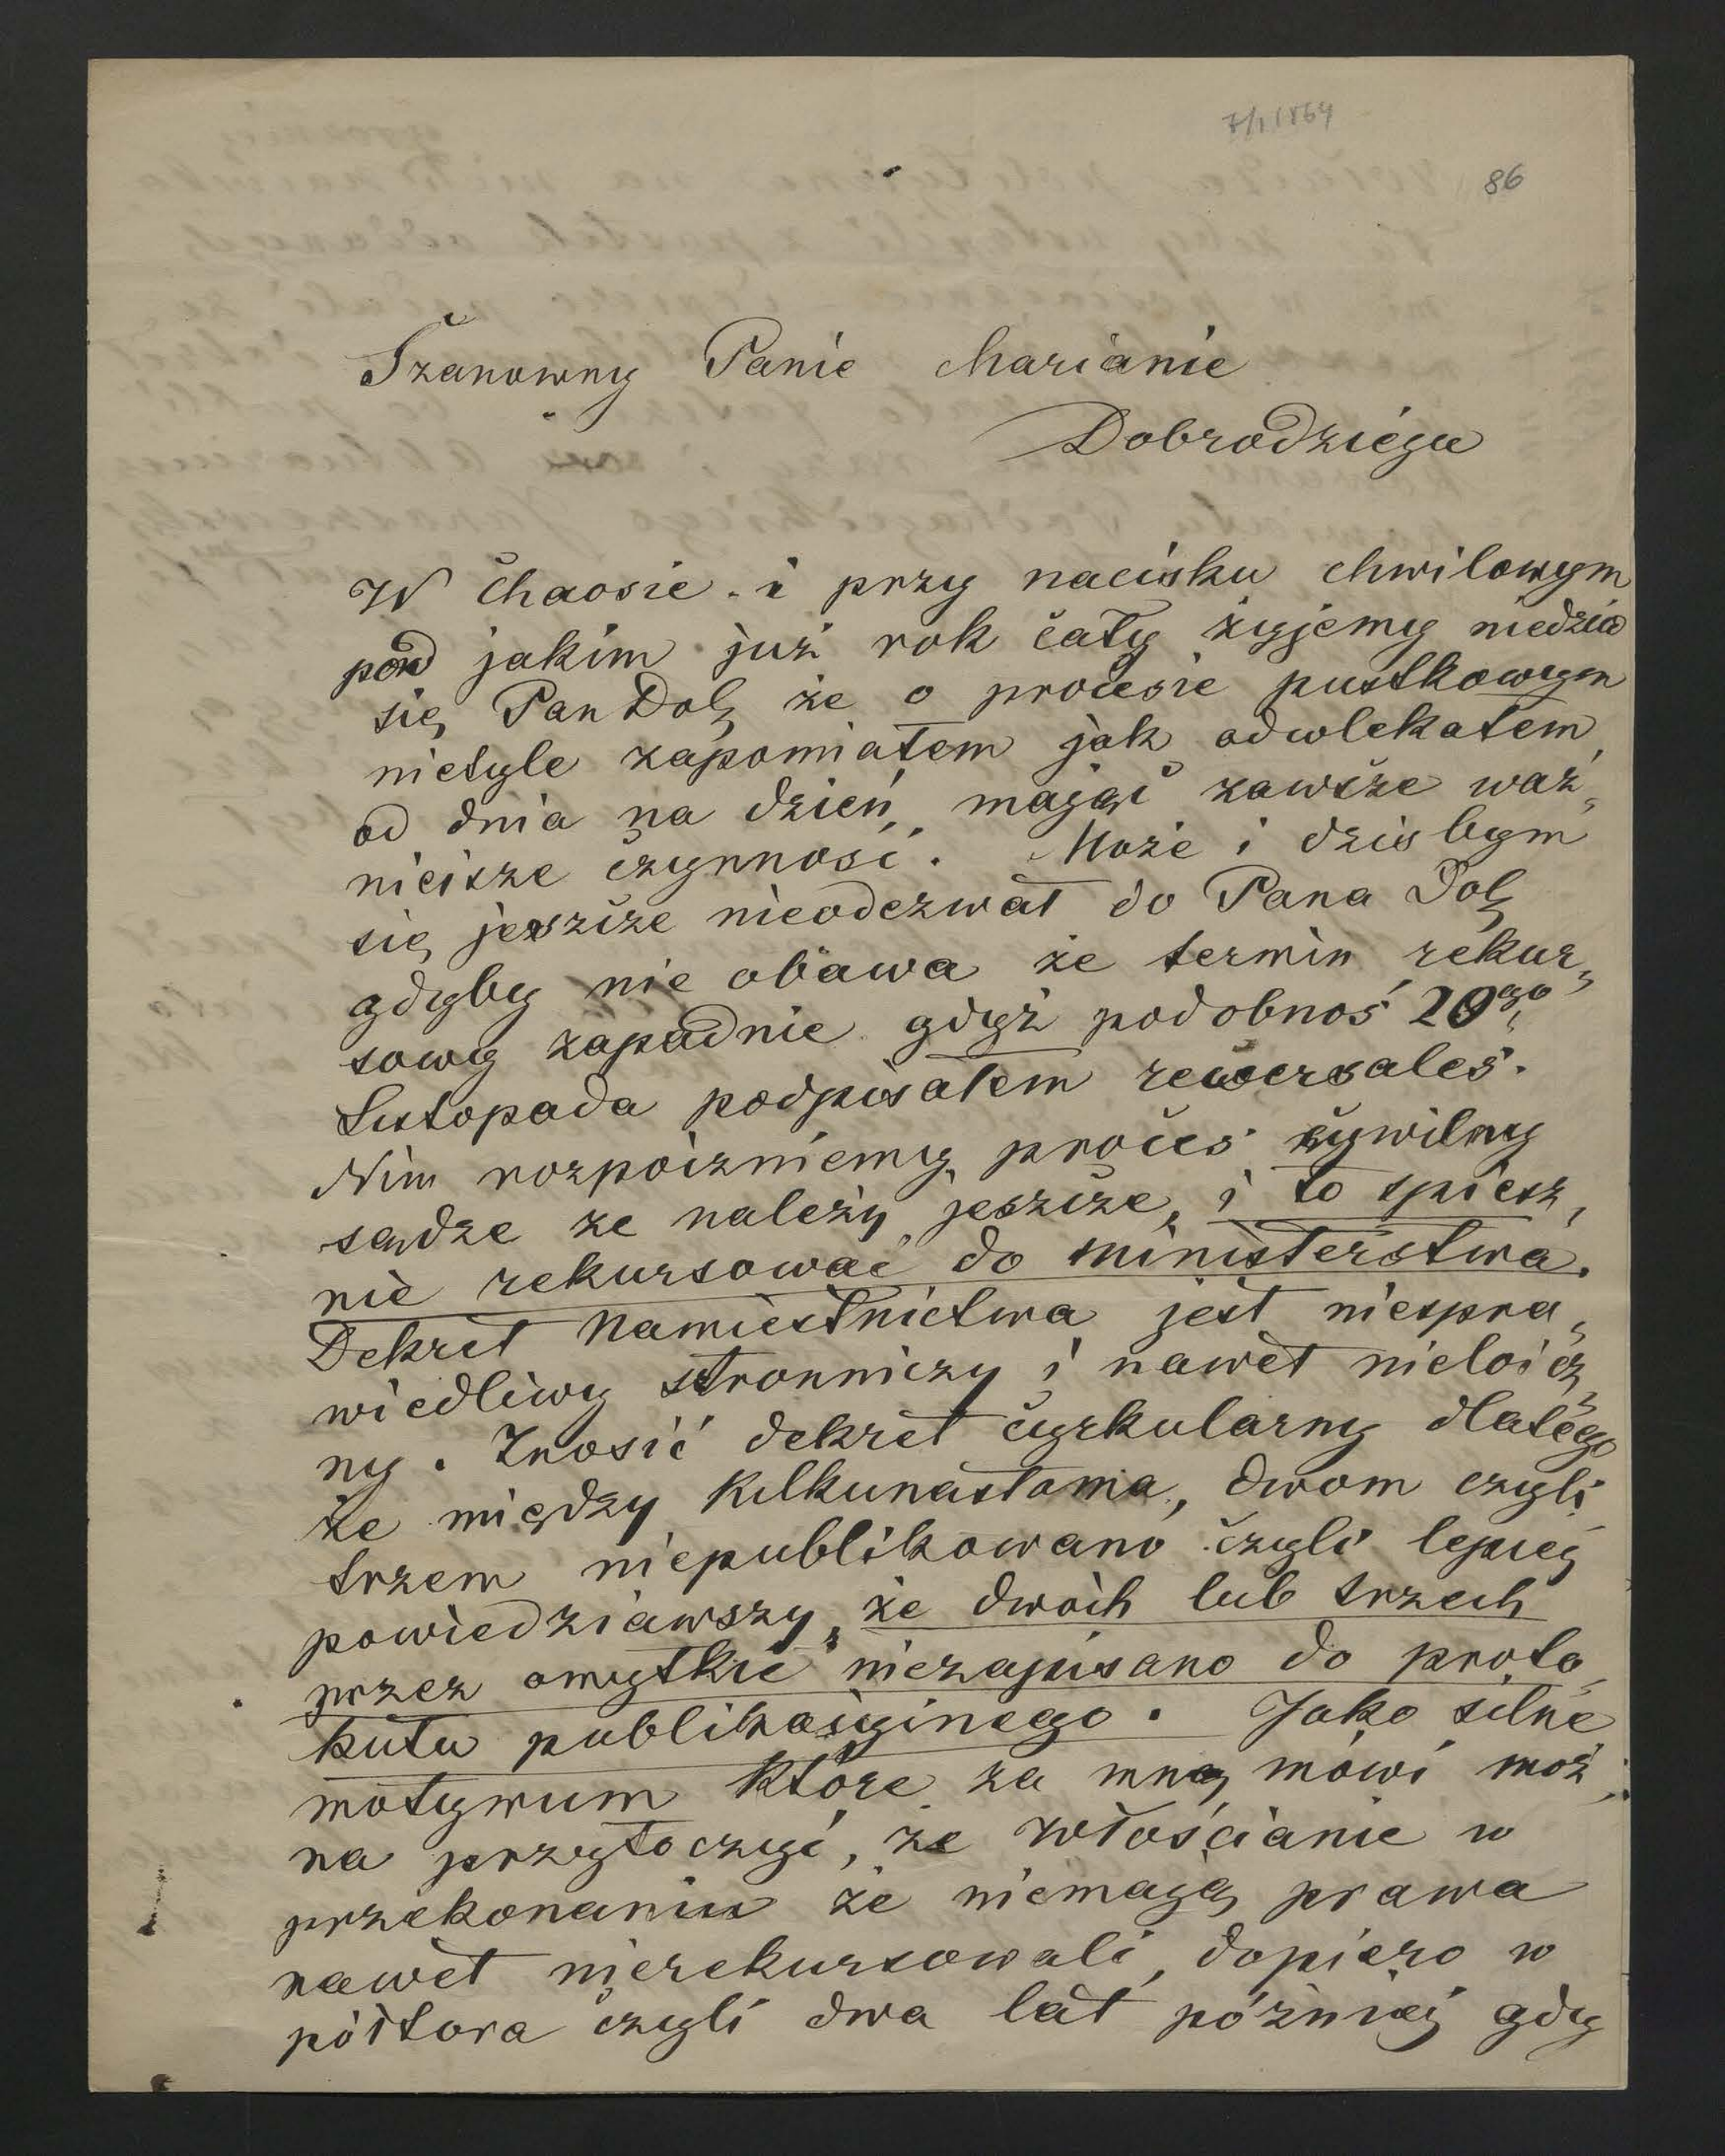 7/1 1864
86
Szanowny Panie Marianie
Dobrodzieju
W chaosie i przy nacisku chwilowym
pod jakim już rok cały żyjemy niedziw
się Pan Dob, że o procesie pustkowym
nietyle zapomiałem jak odwlekałem
od dnia na dzień, mając zawsze waż„
nieisze czynności. Może i dziś bym
się jeszcze nieodezwał do Pana Dob,
gdyby nie obawa że termin rekur„
sowy zapadnie gdyż podobnoś 20go
Listopada podpisałem rewersales.
Nim rozpoczniemy proces cywilny
sądze że należy jeszcze, i to spiesz„
nie rekursować do ministerstwa.
Dekret Namiestnictwa jest niespra„
wiedliwy stronniczy i nawet nieloicz„
ny. Znosić dekret cyrkularny dlatego
że między kilkunastoma, dwom czyli
trzem niepublikowano czyli lepiej
powiedziawszy, że dwóch lub trzech
przez omyłkie niezapisano do proto„
kułu publikacyjnego. Jako silne
motywum które za mną mówi moż„
na przytoczyć, że włościanie w
przekonaniu że niemają prawa
nawet nierekursowali, dopiero w
półtora czyli dwa lat później gdy